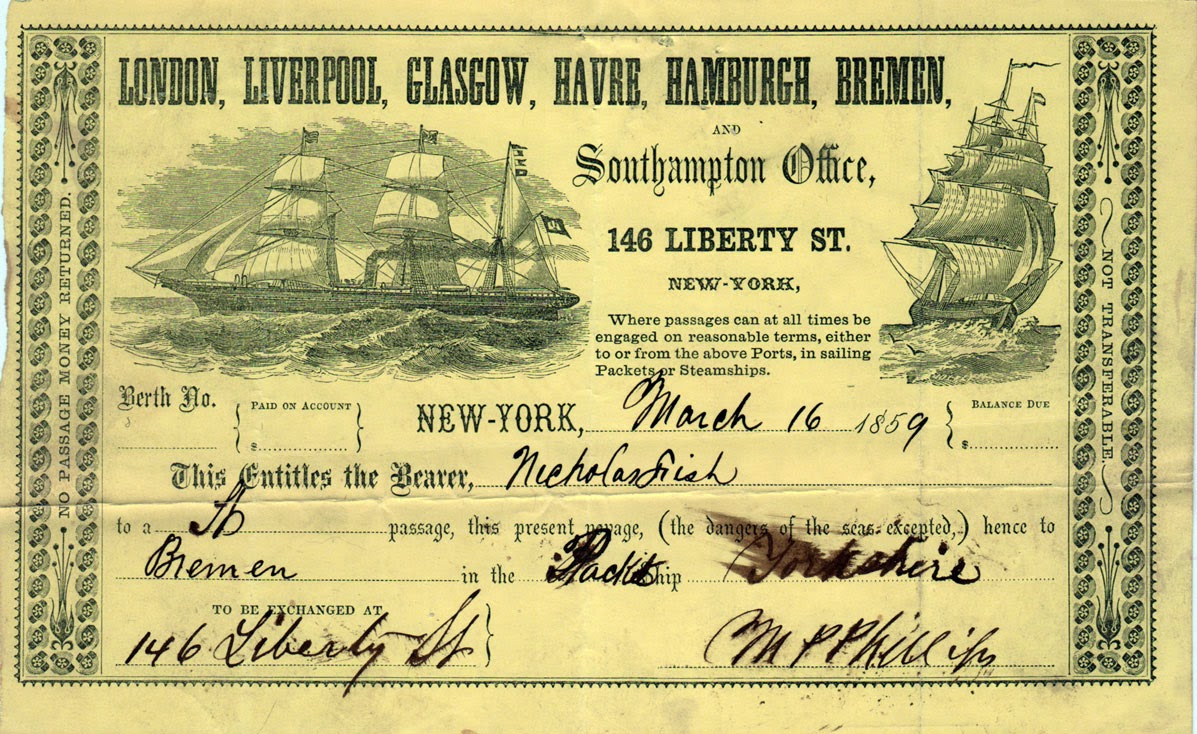 LONDON, LIVERPOOL, GLASGOW, HAVRE, HAMBURGH, BREMEN,
AND
Southampton Office,
146 LIBERTY ST.
NEW-YORK,
Where passages can at all times be
engaged on reasonable terms, either
to or from the above Ports, in sailing
Packets or Steamships.
Berth No.
PAID ON ACCOUNT
$
NEW-YORK, March 16 1859
BALANCE DUE
$
This Entitles the Bearer, Nicholas Fish
to a St passage, this present voyage, (the dangers of the seas excepted,) hence to
Bremen in the Packet Ship Yorkshire
TO BE EXCHANGED AT
146 Liberty St
M P Phillips
NO PASSAGE MONEY RETURNED.
NOT TRANSFERABLE